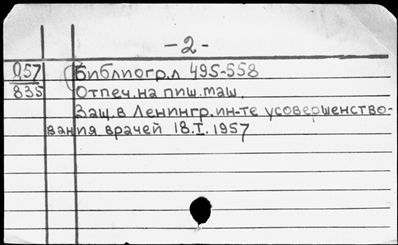 -2-
057 Библиогр.л 495-558
835 Отпеч.на пиш.маш.
Защ.в Ленингр.ин-те усовершенство-
вания врачей 18.I.1957